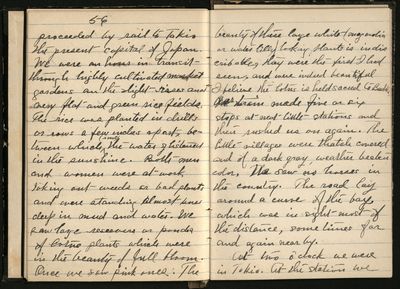 56
proceeded by rail to Tokio
the present capital of Japan.
We were an hour in transit
through highly cultivated market
gardens on the slight rises and
very flat and green rice fields.
The rice was planted in drills
or rows a few inches apart, be-
tween which the water glistened
in the sunshine. Both men
and women were at work
taking out weeds or bad plants
and were standing almost knee
deep in mud and water. We
saw large reservoirs or ponds
of lotus plants which were
in the beauty of full bloom.
Once we saw pink ones. The
beauty of these large white
or water lily looking plants is indes
cribable, they were the first I had
seen, and were indeed beautiful
I believe the lotus is held sacred to
Our train made five or six
stops at neat little stations and
then rushed us on again. The
little villages were thatch covered
and of a dark gray, weather beaten
color. We saw no horses in
the country. The road lay
around a curve of the bay,
which was in sight most of
the distance, sometimes far
and again near by.
At two o'clock we were
in Tokio. At the station we